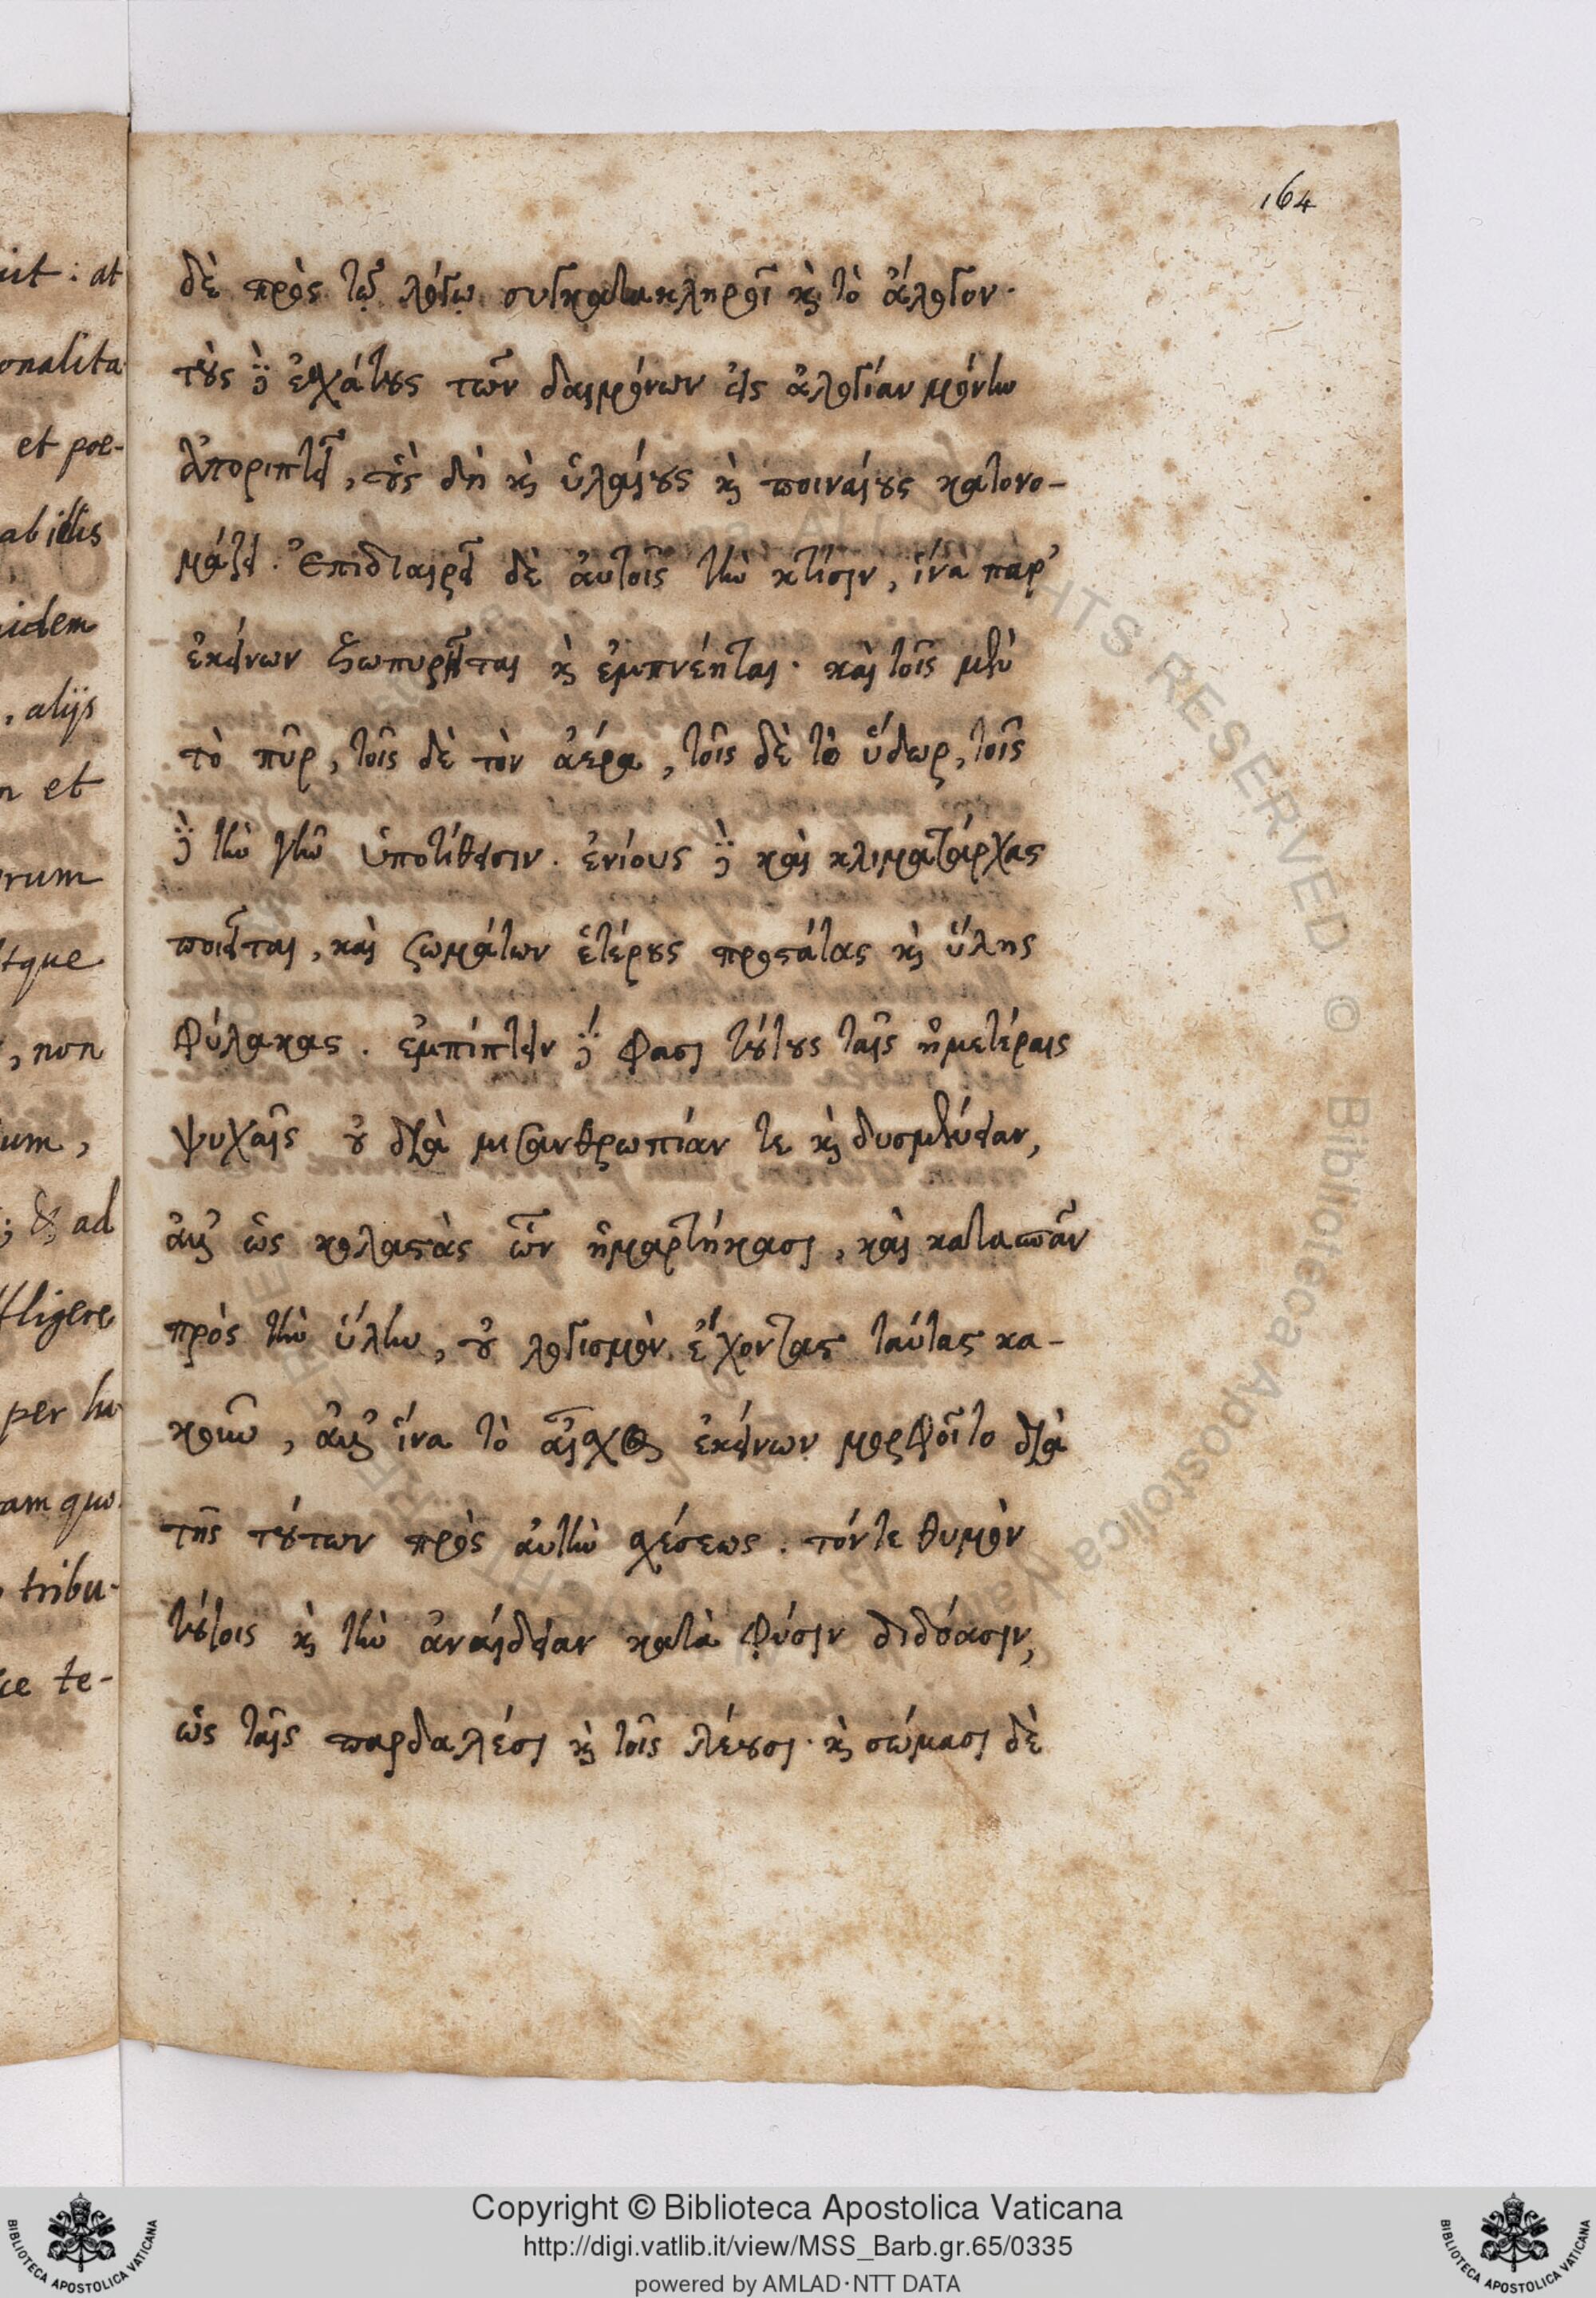 ut : at
onalita
et poe-
ab illis
idem
, alijs
n et
rum
tque
, non
um,
; & ad
fligere
per hu
am quo
tribu-
ce te-
164
δὲ πρὸς τῷ λόγῳ συγκατακληροῖ καὶ τὸ ἄλογον·
τοὺς δὲ ἐσχάτους τῶν δαιμόνων εἰς ἀλογίαν μόνην
ἀπορίπτει, οὓς δὴ καὶ ὑλαίους καὶ ποιναίους κατονο-
μάζει. Ἐπιδιαιρεῖ δὲ αὐτοῖς τὴν κτίσιν, ἵνα παρ'
ἐκείνων ζωπυρῆται καὶ ἐμπνέηται. καὶ τοῖς μὲν
τὸ πῦρ, τοῖς δὲ τὸν ἀέρα, τοῖς δὲ τὸ ὕδωρ, τοῖς
δὲ τὴν γῆν ὑποτίθεισιν. ἐνίους δὲ καὶ κλιματάρχας
ποιεῖται, καὶ ζωμάτων ἑτέρους προστάτας καὶ ὕλης
φύλακας. ἐμπίπτειν δέ φασι τούτους ταῖς ἡμετέραις
ψυχαῖς οὐ διὰ μισανθρωπίαν τε καὶ δυσμένειαν,
ἀλλ' ὡς κολαστὰς ὧν ἡμαρτήκασι, καὶ καταπᾶν
πρὸς τὴν ὕλην, οὐ λογισμὸν ἔχοντας ταύτας κα-
κοῦν, ἀλλ' ἵνα τὸ αἶσχος ἐκείνων μορφοῖτο διὰ
τῆς τούτων πρὸς αὐτὴν σχέσεως. τόν τε θυμὸν
τούτοις καὶ τὴν ἀναίδειαν κατὰ φύσιν διδόασιν,
ὡς ταῖς παρδαλέσι καὶ τοῖς λέουσι· καὶ σώμασι δὲ
Copyright © Biblioteca Apostolica Vaticana
http://digi.vatlib.it/view/MSS_Barb.gr.65/0335
powered by AMLAD·NTT DATA
BIBLIOTECA APOSTOLICA VATICANA
BIBLIOTECA APOSTOLICA VATICANA